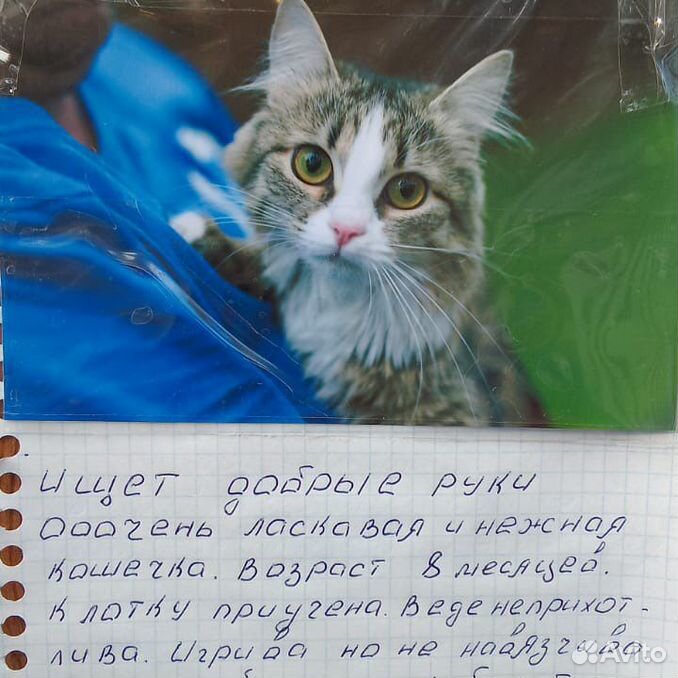 Ищет добрые руки
Оооочень ласкавая и нежная
кошечка. Возраст 8 месяцев.
К лотку приучена. В еде неприхот-
лива. Игрива но не навязчива
Avito